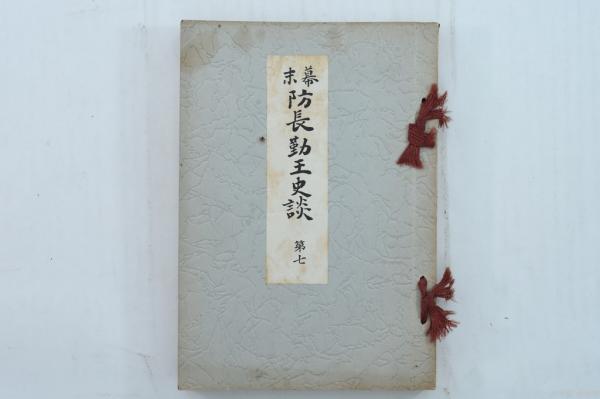 幕末防長勤王史談
第七